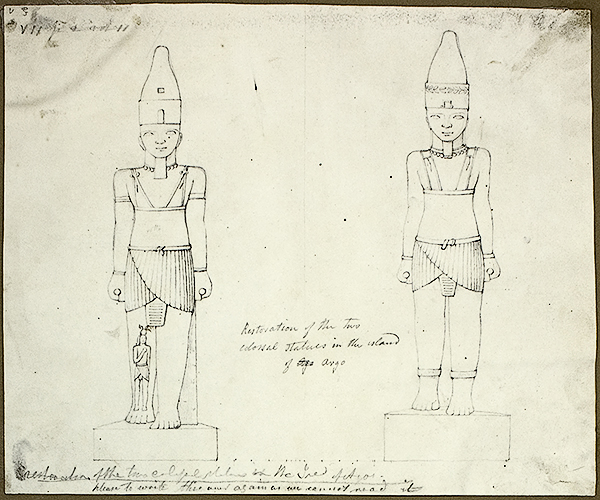 V S
VII
Restoration of the two
colossal statues in the island
of Ago Argo
Restoration of the two colossal statues in the Isle of Argo
please to write the word again as we cannot read it